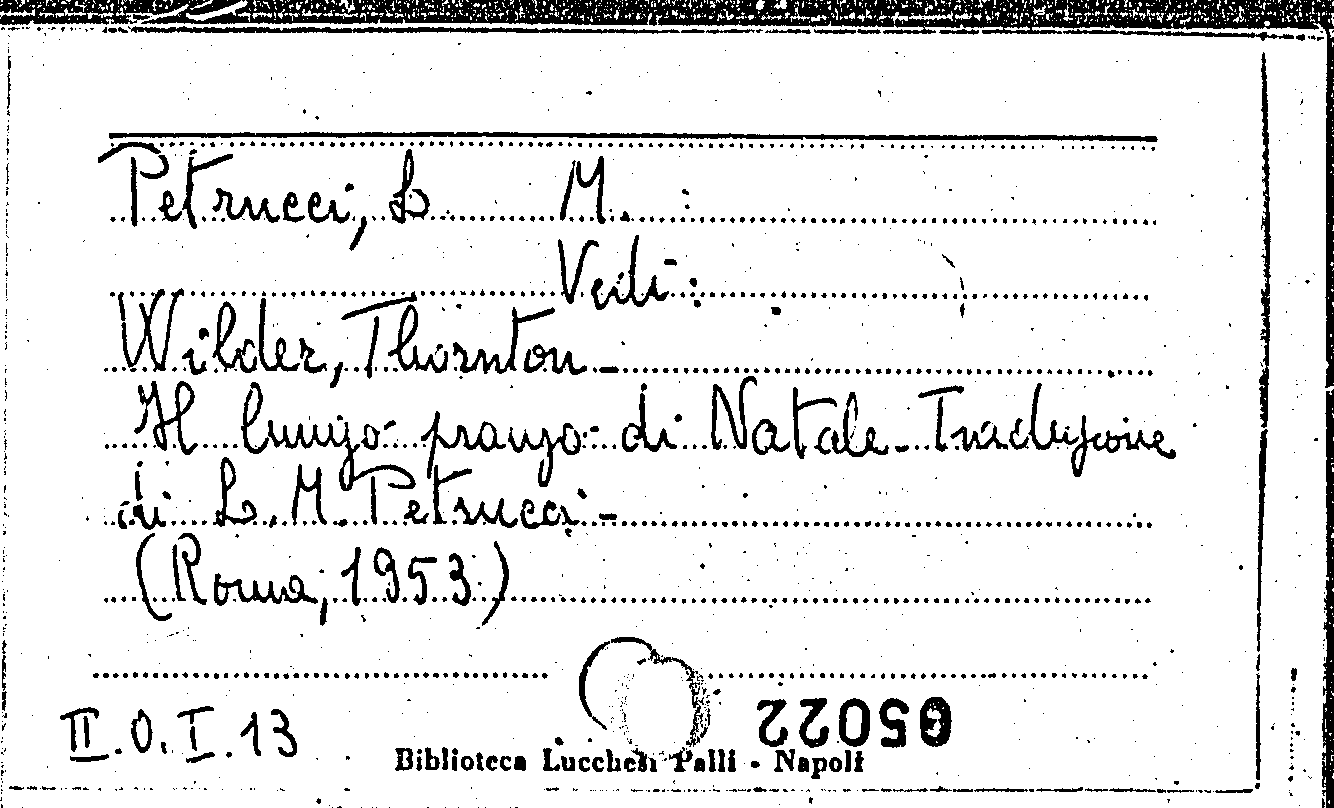 Petrucci, L. M.
Vedi:
Wilder, Thornton -
Il lungo pranzo di Natale - Traduzione
di L. M. Petrucci -
(Roma, 1953)
II.O.I.13
05022
Biblioteca Lucchesi Palli - Napoli